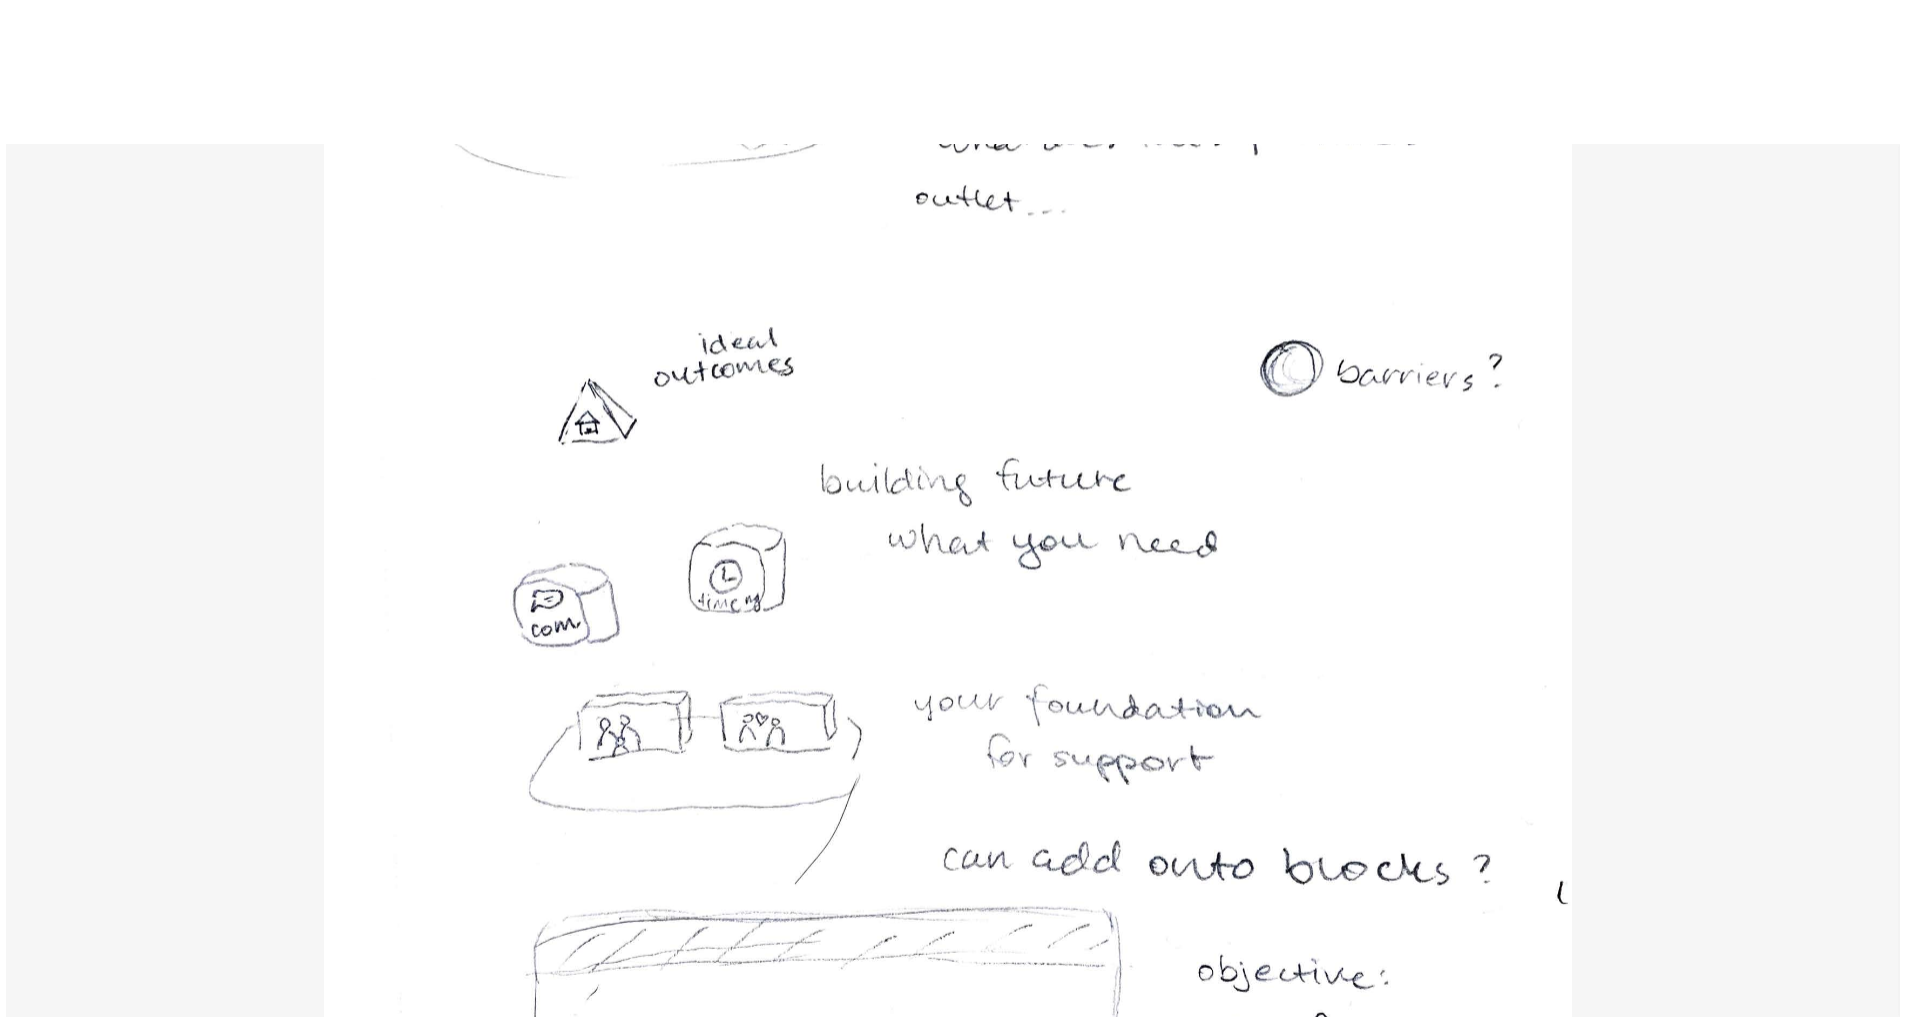 outlet...
ideal
outcomes
barriers?
building future
what you need
time mg
com.
your foundation
for support
can add onto blocks?
objective: